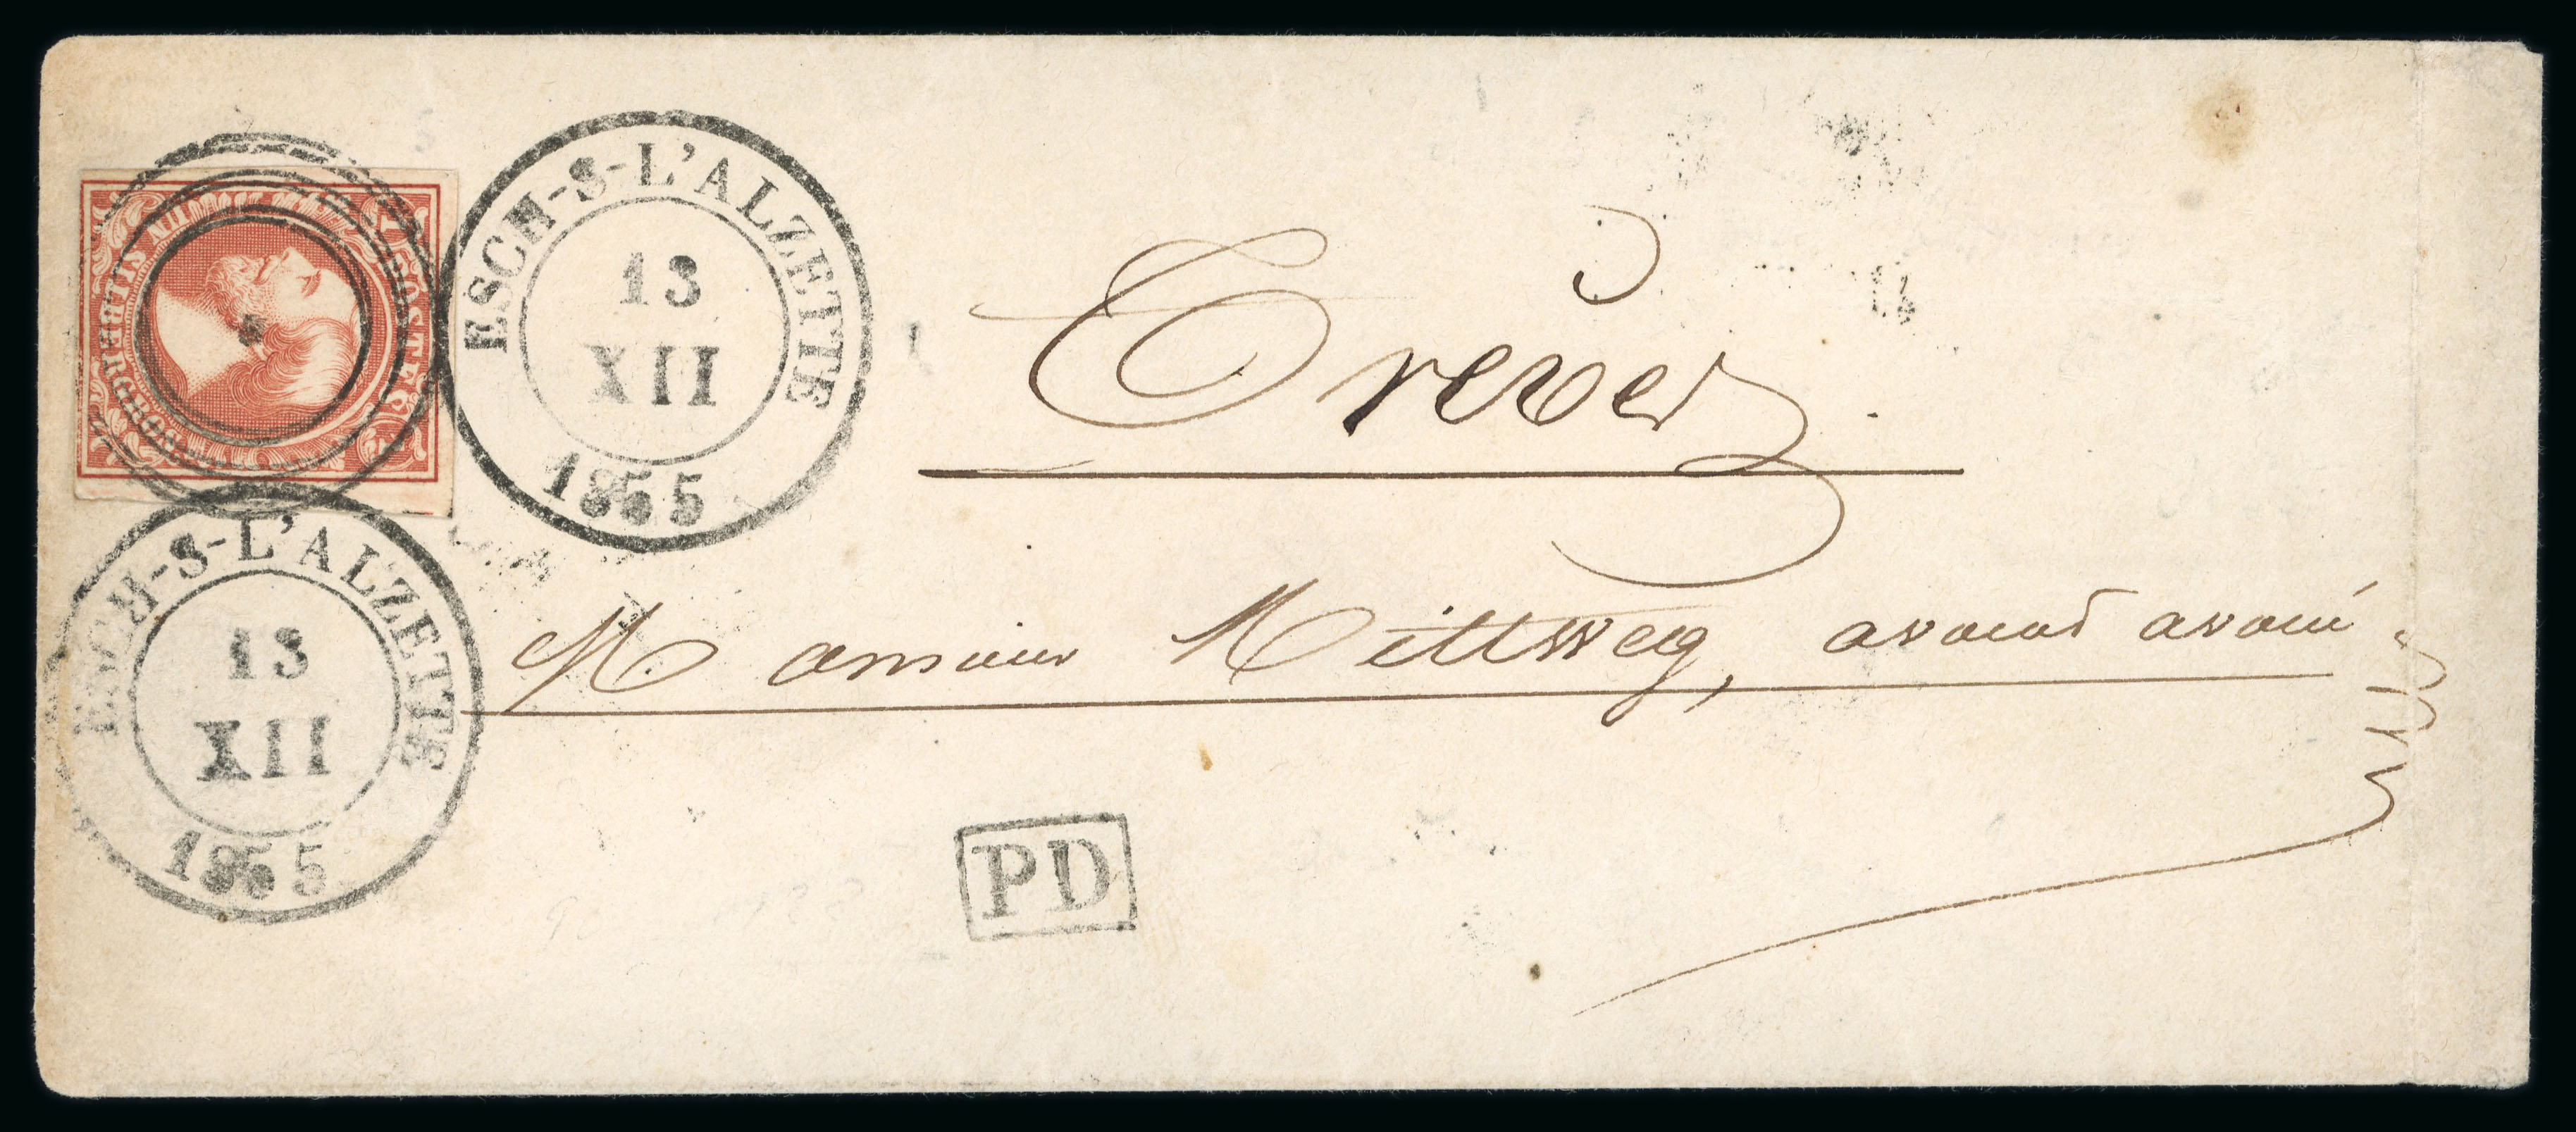 POSTES
UN SILBERGROSCHEN
ESCH-S-L'ALZETTE
13
XII
1855
Trèves.
Monsieur Mittweg, avocat avoué
ESCH-S-L'ALZETTE
13
XII
1855
PD